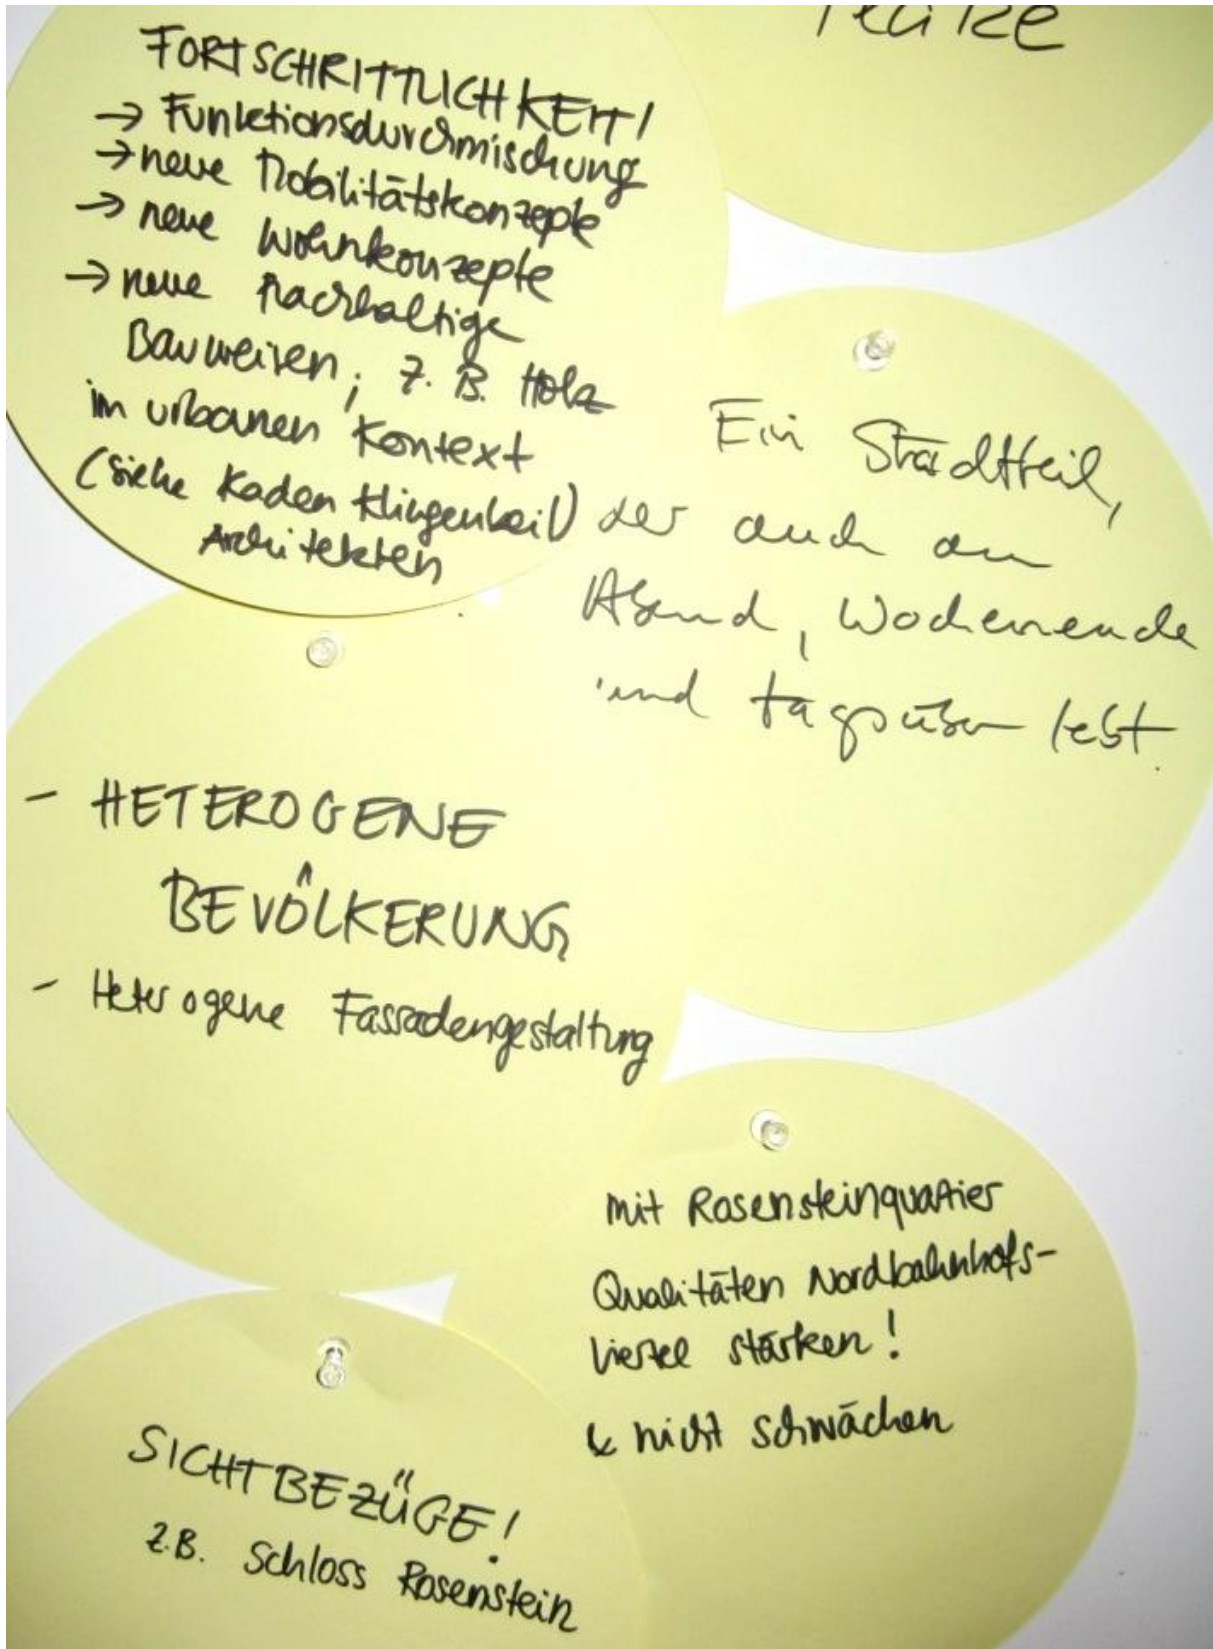 FORTSCHRITTLICHKEIT!
→ Funktionsdurchmischung
→ neue Mobilitätskonzepte
→ neue Wohnkonzepte
→ neue nachhaltige
Bauweisen; z.B. Holz
im urbanen Kontext
(siehe Kaden Klingenbeil)
Architekten
Ein Stadtteil,
der auch am
Abend, Wochenende
und tagsüber lebt.
- HETEROGENE
BEVÖLKERUNG
- Heterogene Fassadengestaltung
mit Rosensteinquartier
Qualitäten Nordbahnhofs-
viertel stärken!
↳ nicht schwächen
SICHTBEZÜGE!
z.B. Schloss Rosenstein